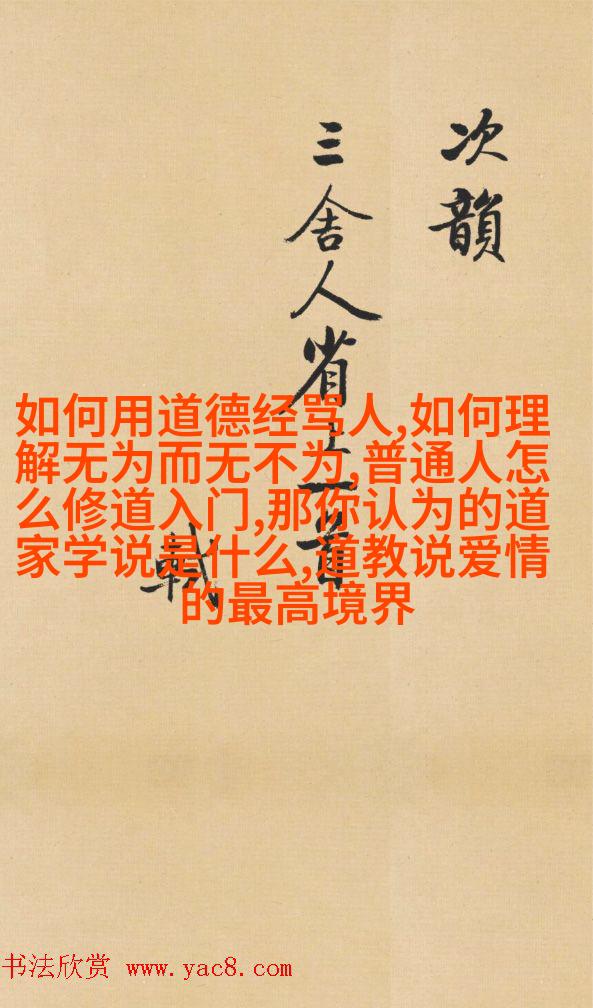 次韻
三舍人省上一首
軾
如何用道德经骂人,如何理
解无为而无不为,普通人怎
么修道入门,那你认为的道
家学说是什么,道教说爱情
的最高境界
书法欣赏 www.yac8.com